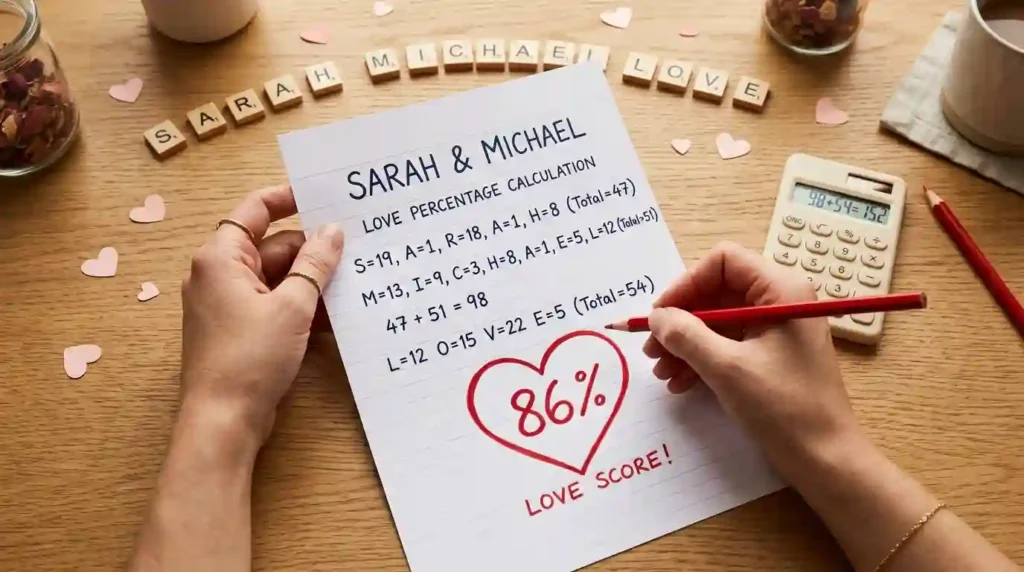 SARAH MICHAEL LOVE
SARAH & MICHAEL
LOVE PERCENTAGE CALCULATION
S=19, A=1, R=18, A=1, H=8 (Total=47)
M=13, I=9, C=3, H=8, A=1, E=5, L=12 (Total=51)
47 + 51 = 98
L=12 O=15 V=22 E=5 (Total=54)
86%
LOVE SCORE!
98+54=152
% ÷
7 8 9 ×
4 5 6
1 2 3